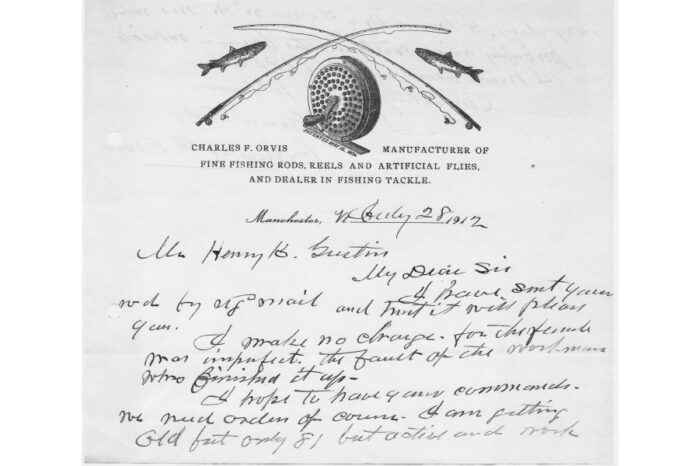 PATENTED MAY 12, 1874.
CHARLES F. ORVIS MANUFACTURER OF
FINE FISHING RODS, REELS AND ARTIFICIAL FLIES,
AND DEALER IN FISHING TACKLE.
Manchester, Vt July 28 1912
Mr Henry K.
My Dear Sir
I have sent your
rod by mail and trust it will please
you.
I make no charge. for the ferrule
was imperfect. the fault of the workman
who finished it up-
I hope to have your commands.
we need orders of course. I am getting
Old but only 81 but active and work